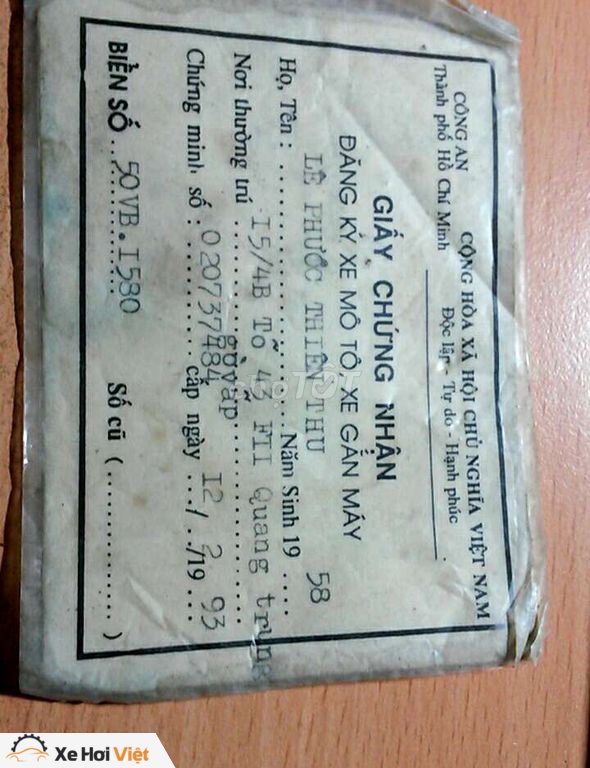 CÔNG AN
Thành phố Hồ Chí Minh
CỘNG HÒA XÃ HỘI CHỦ NGHĨA VIỆT NAM
Độc lập - Tự do - Hạnh phúc
GIẤY CHỨNG NHẬN
ĐĂNG KÝ XE MÔ TÔ, XE GẮN MÁY
Họ, Tên : LÊ PHƯỚC THIÊN THU Năm Sinh 19 58
Nơi thường trú I5/4B Tổ 43 FII Quang trung
gò vấp
Chứng minh số : 020737484 cấp ngày I2/ 2/19 93
BIỂN SỐ 50VB.I580 Số cũ (....................)
chợTỐT
Xe Hơi Việt